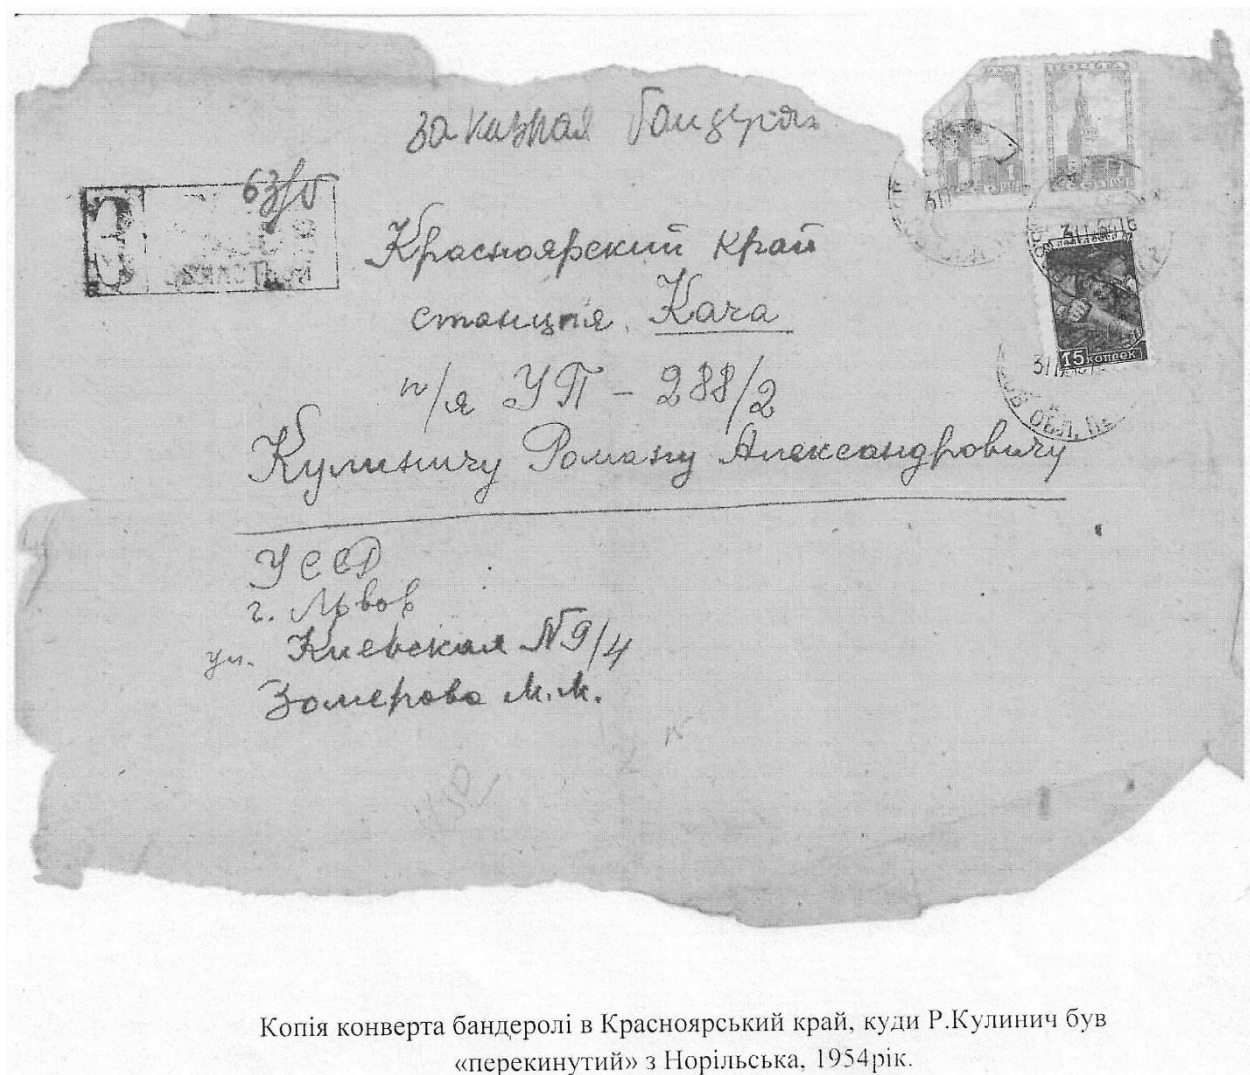 заказная бандероль
63/5
З
Красноярский край
станция Кача
п/я УП - 288/2
Кулиничу Роману Александровичу
15 копеек
УССР
г. Львов
ул. Киевская №9/4
Зомерова М.М.
Копія конверта бандеролі в Красноярський край, куди Р.Кулинич був
«перекинутий» з Норільська, 1954рік.